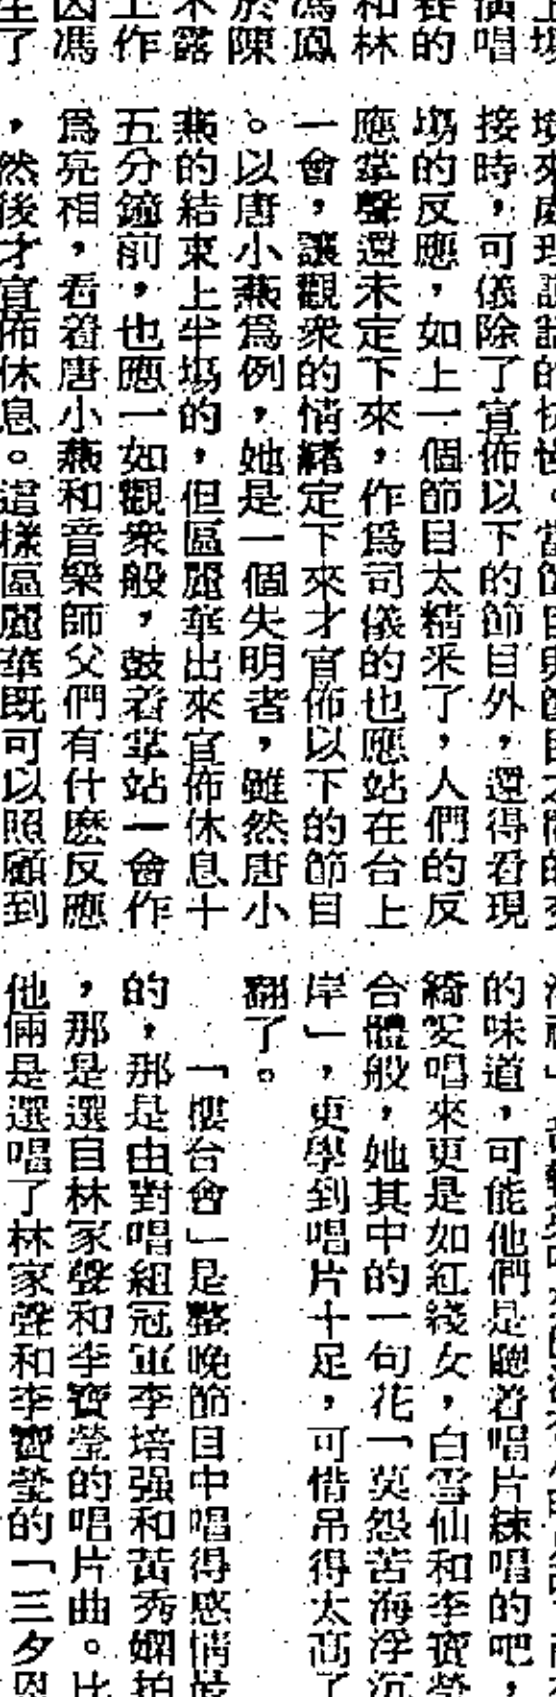 演唱
賽的
和林
馮鳳
於陳
不露
工作
因馮
生了
接時，可儀除了宣佈以下的節目外，還得看現
塲的反應，如上一個節目太精釆了，人們的反
應掌聲還未定下來，作爲司儀的也應站在台上
一會，讓觀衆的情緒定下來才宣佈以下的節目
。以唐小燕爲例，她是一個失明者，雖然唐小
燕的結束上半塲的，但區麗華出來宣佈休息十
五分鐘前，也應一如觀衆般，鼓着掌站一會作
爲亮相，看着唐小燕和音樂師父們有什麽反應
，然後才宣佈休息。這樣區麗華既可以照顧到
的味道，可能他們是聽着唱片練唱的吧，
綺雯唱來更是如紅綫女，白雪仙和李寶瑩
合體般，她其中的一句花「莫怨苦海浮沉
岸」，更學到唱片十足，可惜吊得太高了
翻了。
「樓台會」是整晚節目中唱得感情
的，那是由對唱組冠軍李培强和黃秀嫻拍
，那是選自林家聲和李寶瑩的唱片曲。比
他倆是選唱了林家聲和李寶瑩的「三夕恩